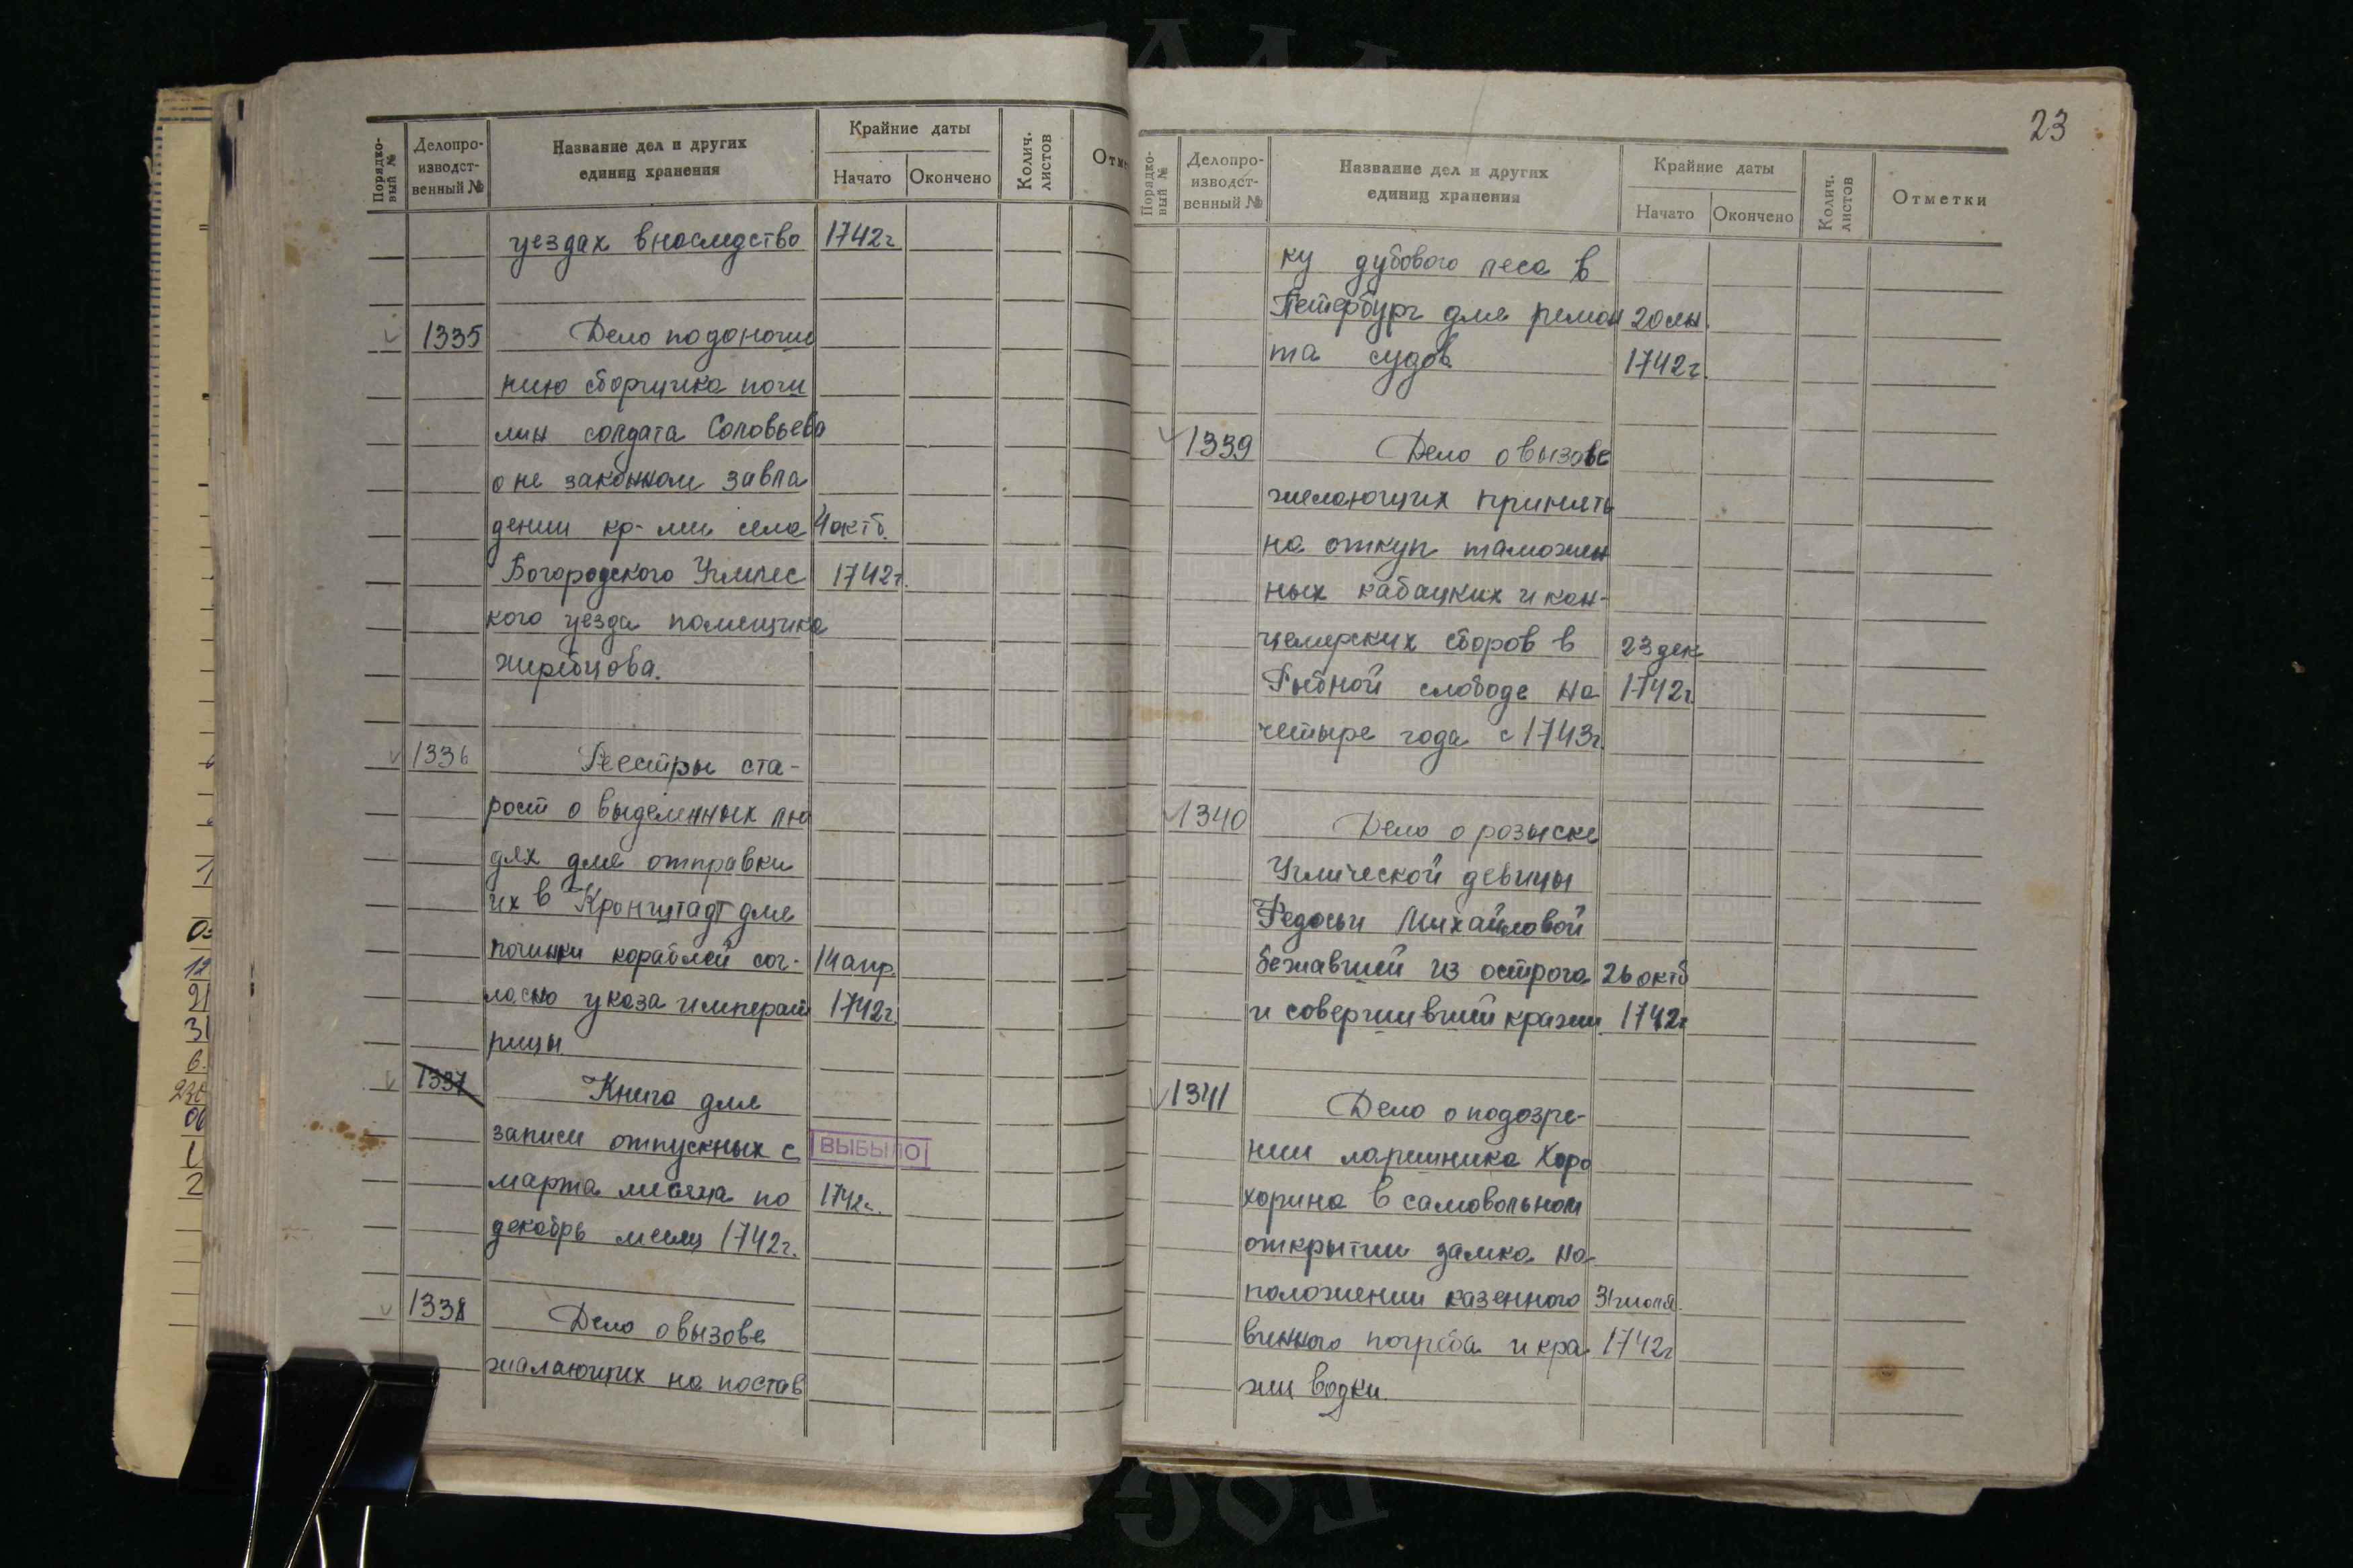 Порядко-
вый №
Делопро-
изводст-
венный №
Название дел и других
единиц хранения
Крайние даты
Начато
Окончено
Колич.
листов
уездах в наследство 1742г
1335 Дело по доноше
нию сборщика поши
лин солдата Соловьева
о не законном завла
дении кр-ми села 4 октб.
Богородского Углицс 1742г.
кого уезда помещика
Жеребцова.
1336 Реестры ста-
рост о выделенных лю
дях для отправки
их в Кронштадт для
починки кораблей сог- 14 апр.
ласно указа императ 1742г.
рицы
1337 Книга для
записи отпускных с ВЫБЫЛО
марта месяца по 1742г.
декабрь месяц 1742г.
1338 Дело о вызове
жалающих на постав
23
Порядко-
вый №
Делопро-
изводст-
венный №
Название дел и других
единиц хранения
Крайние даты
Начато
Окончено
Колич.
листов
Отметки
ку дубового леса в
Петербург для ремон
та судов 1742г.
1339 Дело о вызове
желающих принять
на откуп таможен
ных кабацких и кан-
целерских сборов в 23 дек
Рыбной слободе на 1742г.
четыре года с 1743г.
1340 Дело о розыске
Углической девицы
Федосьи Михайловой
бежавшей из острога 26 октб
и совершившей кражи 1742г
1341 Дело о подозре-
нии ларешника Хоро
хорина в самовольном
открытии замка на
положении казенного 31 июля.
винного погреба и кра 1742г
жи водки.